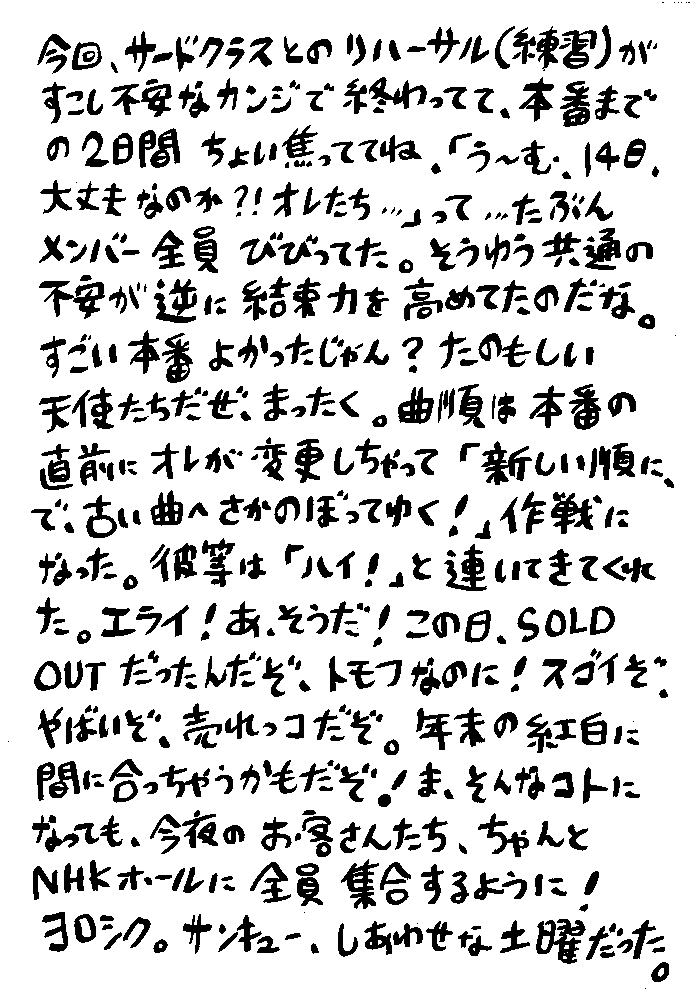 今回、サードクラスとのリハーサル(練習)が
すこし不安なカンジで終わってて、本番まで
の2日間 ちょい焦っててね、「う〜む、14日、
大丈夫なのか?!オレたち…」って…たぶん
メンバー全員 びびってた。そうゆう共通の
不安が逆に結束力を高めてたのだな。
すごい本番よかったじゃん?たのもしい
天使たちだぜ、まったく。曲順は本番の
直前にオレが変更しちゃって「新しい順に、
で、古い曲へさかのぼってゆく!」作戦に
なった。彼等は「ハイ!」と連いてきてくれ
た。エライ!あ、そうだ!この日、SOLD
OUTだったんだぞ、トモフなのに!スゴイぞ、
やばいぞ、売れっコだぞ。年末の紅白に
間に合っちゃうかもだぞ!ま、そんなコトに
なっても、今夜のお客さんたち、ちゃんと
NHKホールに全員集合するように!
ヨロシク。サンキュー、しあわせな土曜だった。